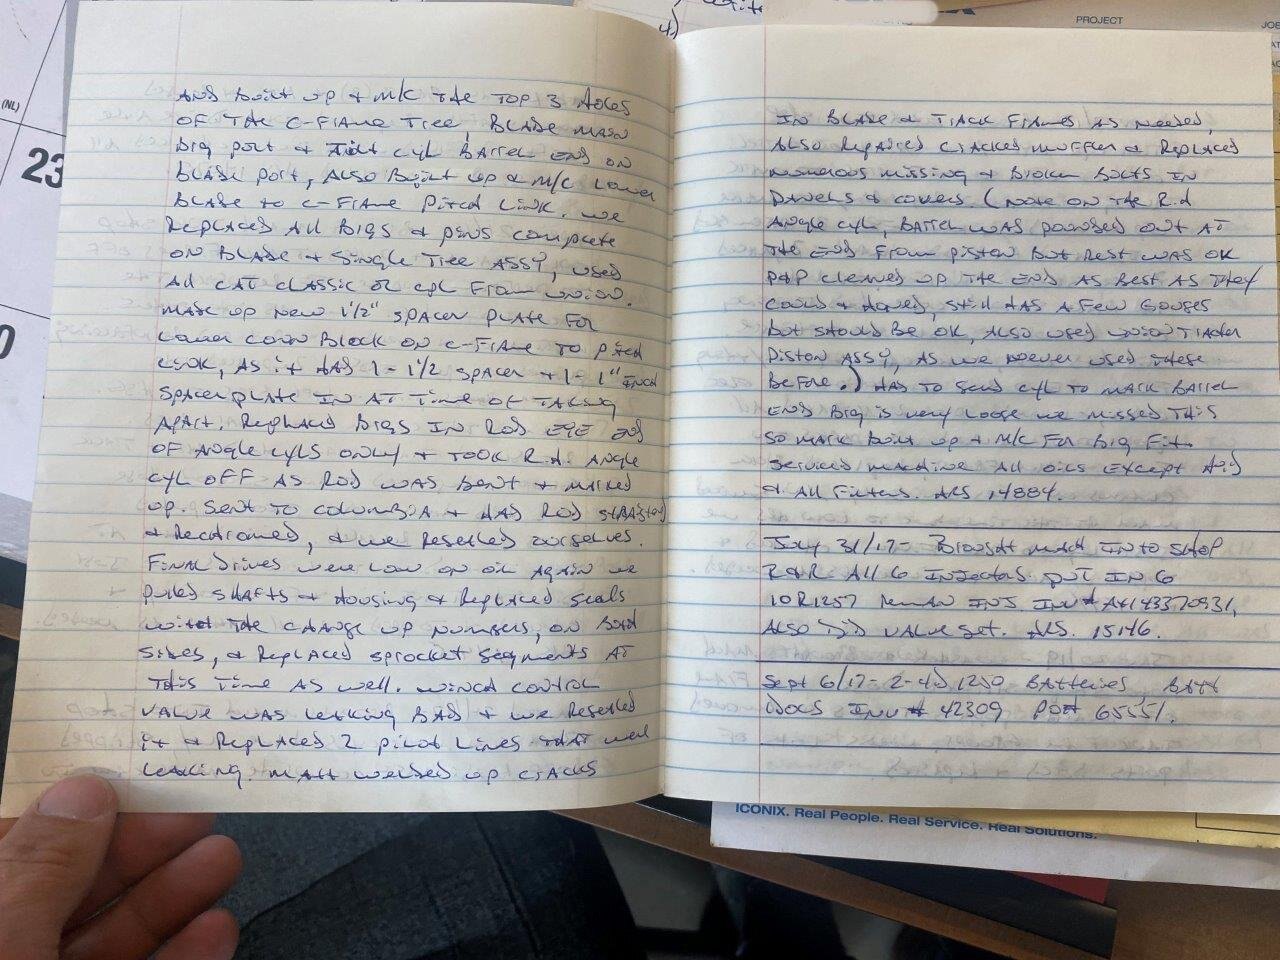 (NL)
23
0
4)
PROJECT
JOB
AND BUILT UP & M/C THE TOP 3 HOLES
OF THE C-FRAME TREE, BLADE MAIN
BRG PORT & TILT CYL BARREL END ON
BLADE PORT, ALSO BUILT UP & M/C LOWER
BLADE TO C-FRAME PITCH LINK. WE
REPLACED ALL BRGS & PINS COMPLETE
ON BLADE & SINGLE TREE ASSY, USED
ALL CAT CLASSIC OR CYL FROM UNION.
MADE UP NEW 1 1/2" SPACER PLATE FOR
LOWER CONN BLOCK ON C-FRAME TO PITCH
LINK, AS IT HAD 1 - 1/2 SPACER & 1 - 1" INCH
SPACER PLATE IN AT TIME OF TAKING
APART. REPLACED BRGS IN ROD EYE END
OF ANGLE CYLS ONLY & TOOK R.H. ANGLE
CYL OFF AS ROD WAS BENT & MARKED
UP. SENT TO COLUMBIA & HAD ROD STRAIGHTEN
& RECHROMED, & WE RESEALED OURSELVES.
FINAL DRIVES WERE LOW ON OIL AGAIN WE
PULLED SHAFTS & HOUSING & REPLACED SEALS
WITH THE CHANGE UP NUMBERS, ON BOTH
SIDES, & REPLACED SPROCKET SEGMENTS AT
THIS TIME AS WELL. WINCH CONTROL
VALVE WAS LEAKING BAD & WE RESEALED
IT & REPLACED 2 PILOT LINES THAT WERE
LEAKING. MATT WELDED UP CRACKS
IN BLADE & TRACK FRAMES AS NEEDED,
ALSO REPAIRED CRACKED MUFFLER & REPLACED
NUMEROUS MISSING & BROKEN BOLTS IN
PANELS & COVERS. (NOTE ON THE R.H
ANGLE CYL, BARREL WAS POUNDED OUT AT
THE END FROM PISTON BUT REST WAS OK
P&P CLEANED UP THE END AS BEST AS THEY
COULD & HONED, STILL HAS A FEW GOUGES
BUT SHOULD BE OK, ALSO USED UNION TRACTOR
PISTON ASSY, AS WE NEVER USED THESE
BEFORE.) HAD TO SEND CYL TO MARK BARREL
END BRG IS VERY LOOSE WE MISSED THIS
SO MARK BUILT UP & M/C FOR BRG FIT.
SERVICED MACHINE ALL OILS EXCEPT HYD
& ALL FILTERS. HRS 14884.
JULY 31/17 - BROUGHT MACH INTO SHOP
R&R ALL 6 INJECTORS PUT IN 6
10R1257 REMAN INJ INV# AH143370931,
ALSO DID VALVE SET. HRS. 15146.
SEPT 6/17 - 2-4D 1250 BATTERIES, BATT
DOCS INV# 42309 PO# 65551.
ICONIX. Real People. Real Service. Real Solutions.